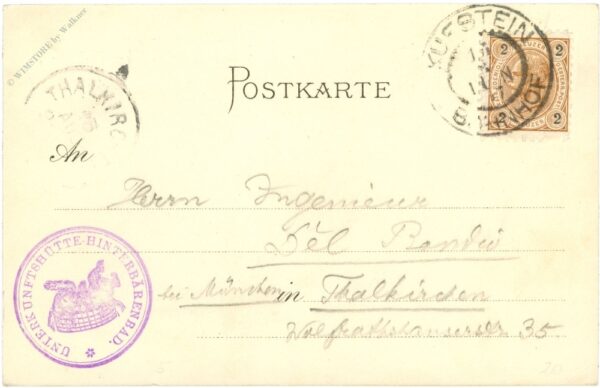 © WIMSTORE by Walkner
KUFSTEIN
BAHNHOF
2 2
2 2
THALKIRC
POSTKARTE
An
Herrn Ingenieur
Dél
bei München in Thalkirchen
Wolfrathshauserstr 35
UNTERKUNFTSHÜTTE-HINTERBÄRENBAD.